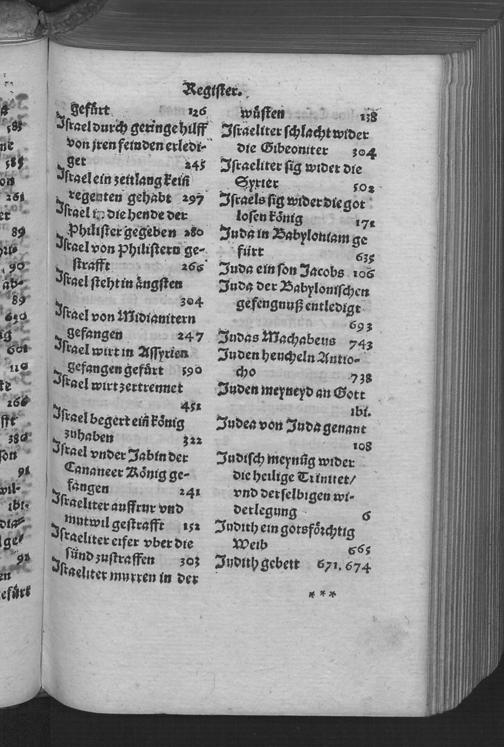 Register.
gefürt 126
Israel durch geringe hilff
von jren feinden erledi-
ger 245
Israel ein zeitlang kein
regenten gehabt 297
Israel in die hende der
Philister gegeben 280
Israel von Philistern ge-
strafft 266
Israel steht in ängsten
304
Israel von Midianitern
gefangen 247
Israel wirt in Assyrien
gefangen gefürt 590
Israel wirt zertrennet
451
Israel begert ein könig
zuhaben 322
Israel vnder Jabin der
Cananeer König ge-
fangen 241
Israeliter auffrur vnd
mutwil gestrafft 152
Israeliter eifer vber die
sünd zustraffen 303
Israeliter murren in der
wüsten 138
Israeliter schlacht wider
die Gibeoniter 304
Israeliter sig wider die
Syrier 502
Israels sig wider die got
losen könig 171
Juda in Babyloniam ge
fürt 635
Juda ein son Jacobs 106
Juda der Babylonischen
gefengnuß entledigt
693
Judas Machabeus 743
Juden heucheln Antio-
cho 738
Juden meyneyd an Gott
ibi.
Judea von Juda genant
108
Judisch meynūg wider
die heilige Trinitet/
vnd derselbigen wi-
derlegung 6
Judith ein gotsförchtig
Weib 665
Judith gebett 671. 674
* * *
585
ne
585
on
261
er
89
90
ab-
89
650
ig
601
110
te
266
ftt
380
son
91
wil-
ibi-
dia-
lge-
91
en
efürt